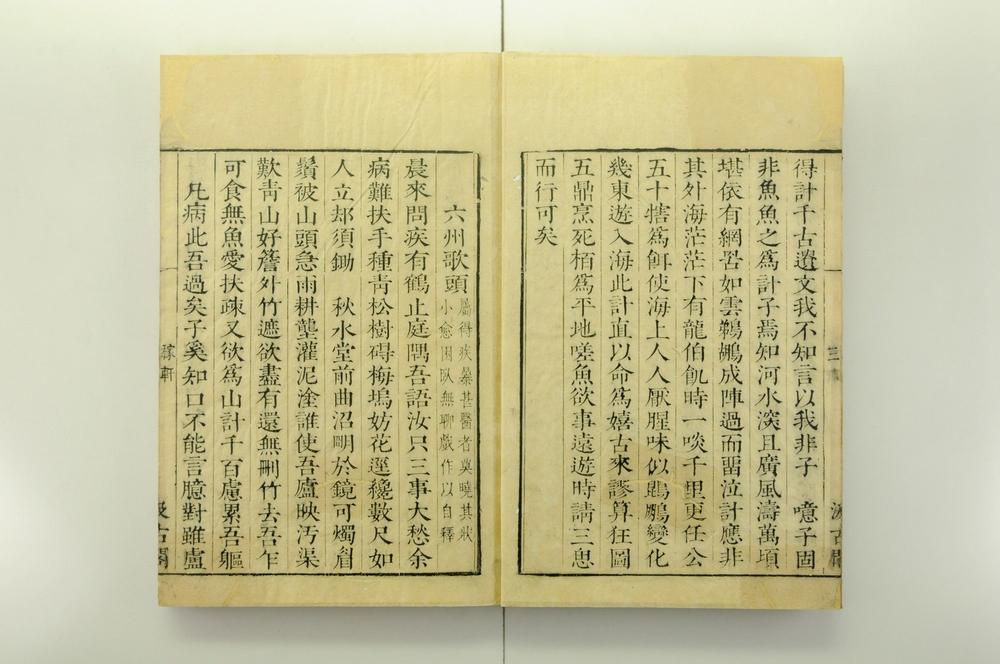 得計千古遺文我不知言以我非子　噫子固
非魚魚之爲計子焉知河水深且廣風濤萬頃
堪依有網罟如雲鵜鶘成陣過而畱泣計應非
其外海茫茫下有龍伯飢時一啖千里更任公
五十犗爲餌使海上人人厭腥味似鵾鵬變化
幾東遊入海此計直以命爲嬉古來謬算狂圖
五鼎烹死栢爲平地嗟魚欲事遠遊時請三思
而行可矣
汲古閣
六州歌頭
屬得疾暴甚醫者莫曉其狀
小愈困臥無聊戲作以自釋
晨來問疾有鶴止庭隅吾語汝只三事大愁余
病難扶手種青松樹碍梅塢妨花逕纔數尺如
人立却須鋤　秋水堂前曲沼明於鏡可燭眉
鬚被山頭急雨耕壟灌泥塗誰使吾廬映汚渠
歎青山好簷外竹遮欲盡有還無刪竹去吾乍
可食無魚愛扶疎又欲爲山計千百慮累吾軀
凡病此吾過矣子奚知口不能言臆對雖盧
稼軒
汲古閣